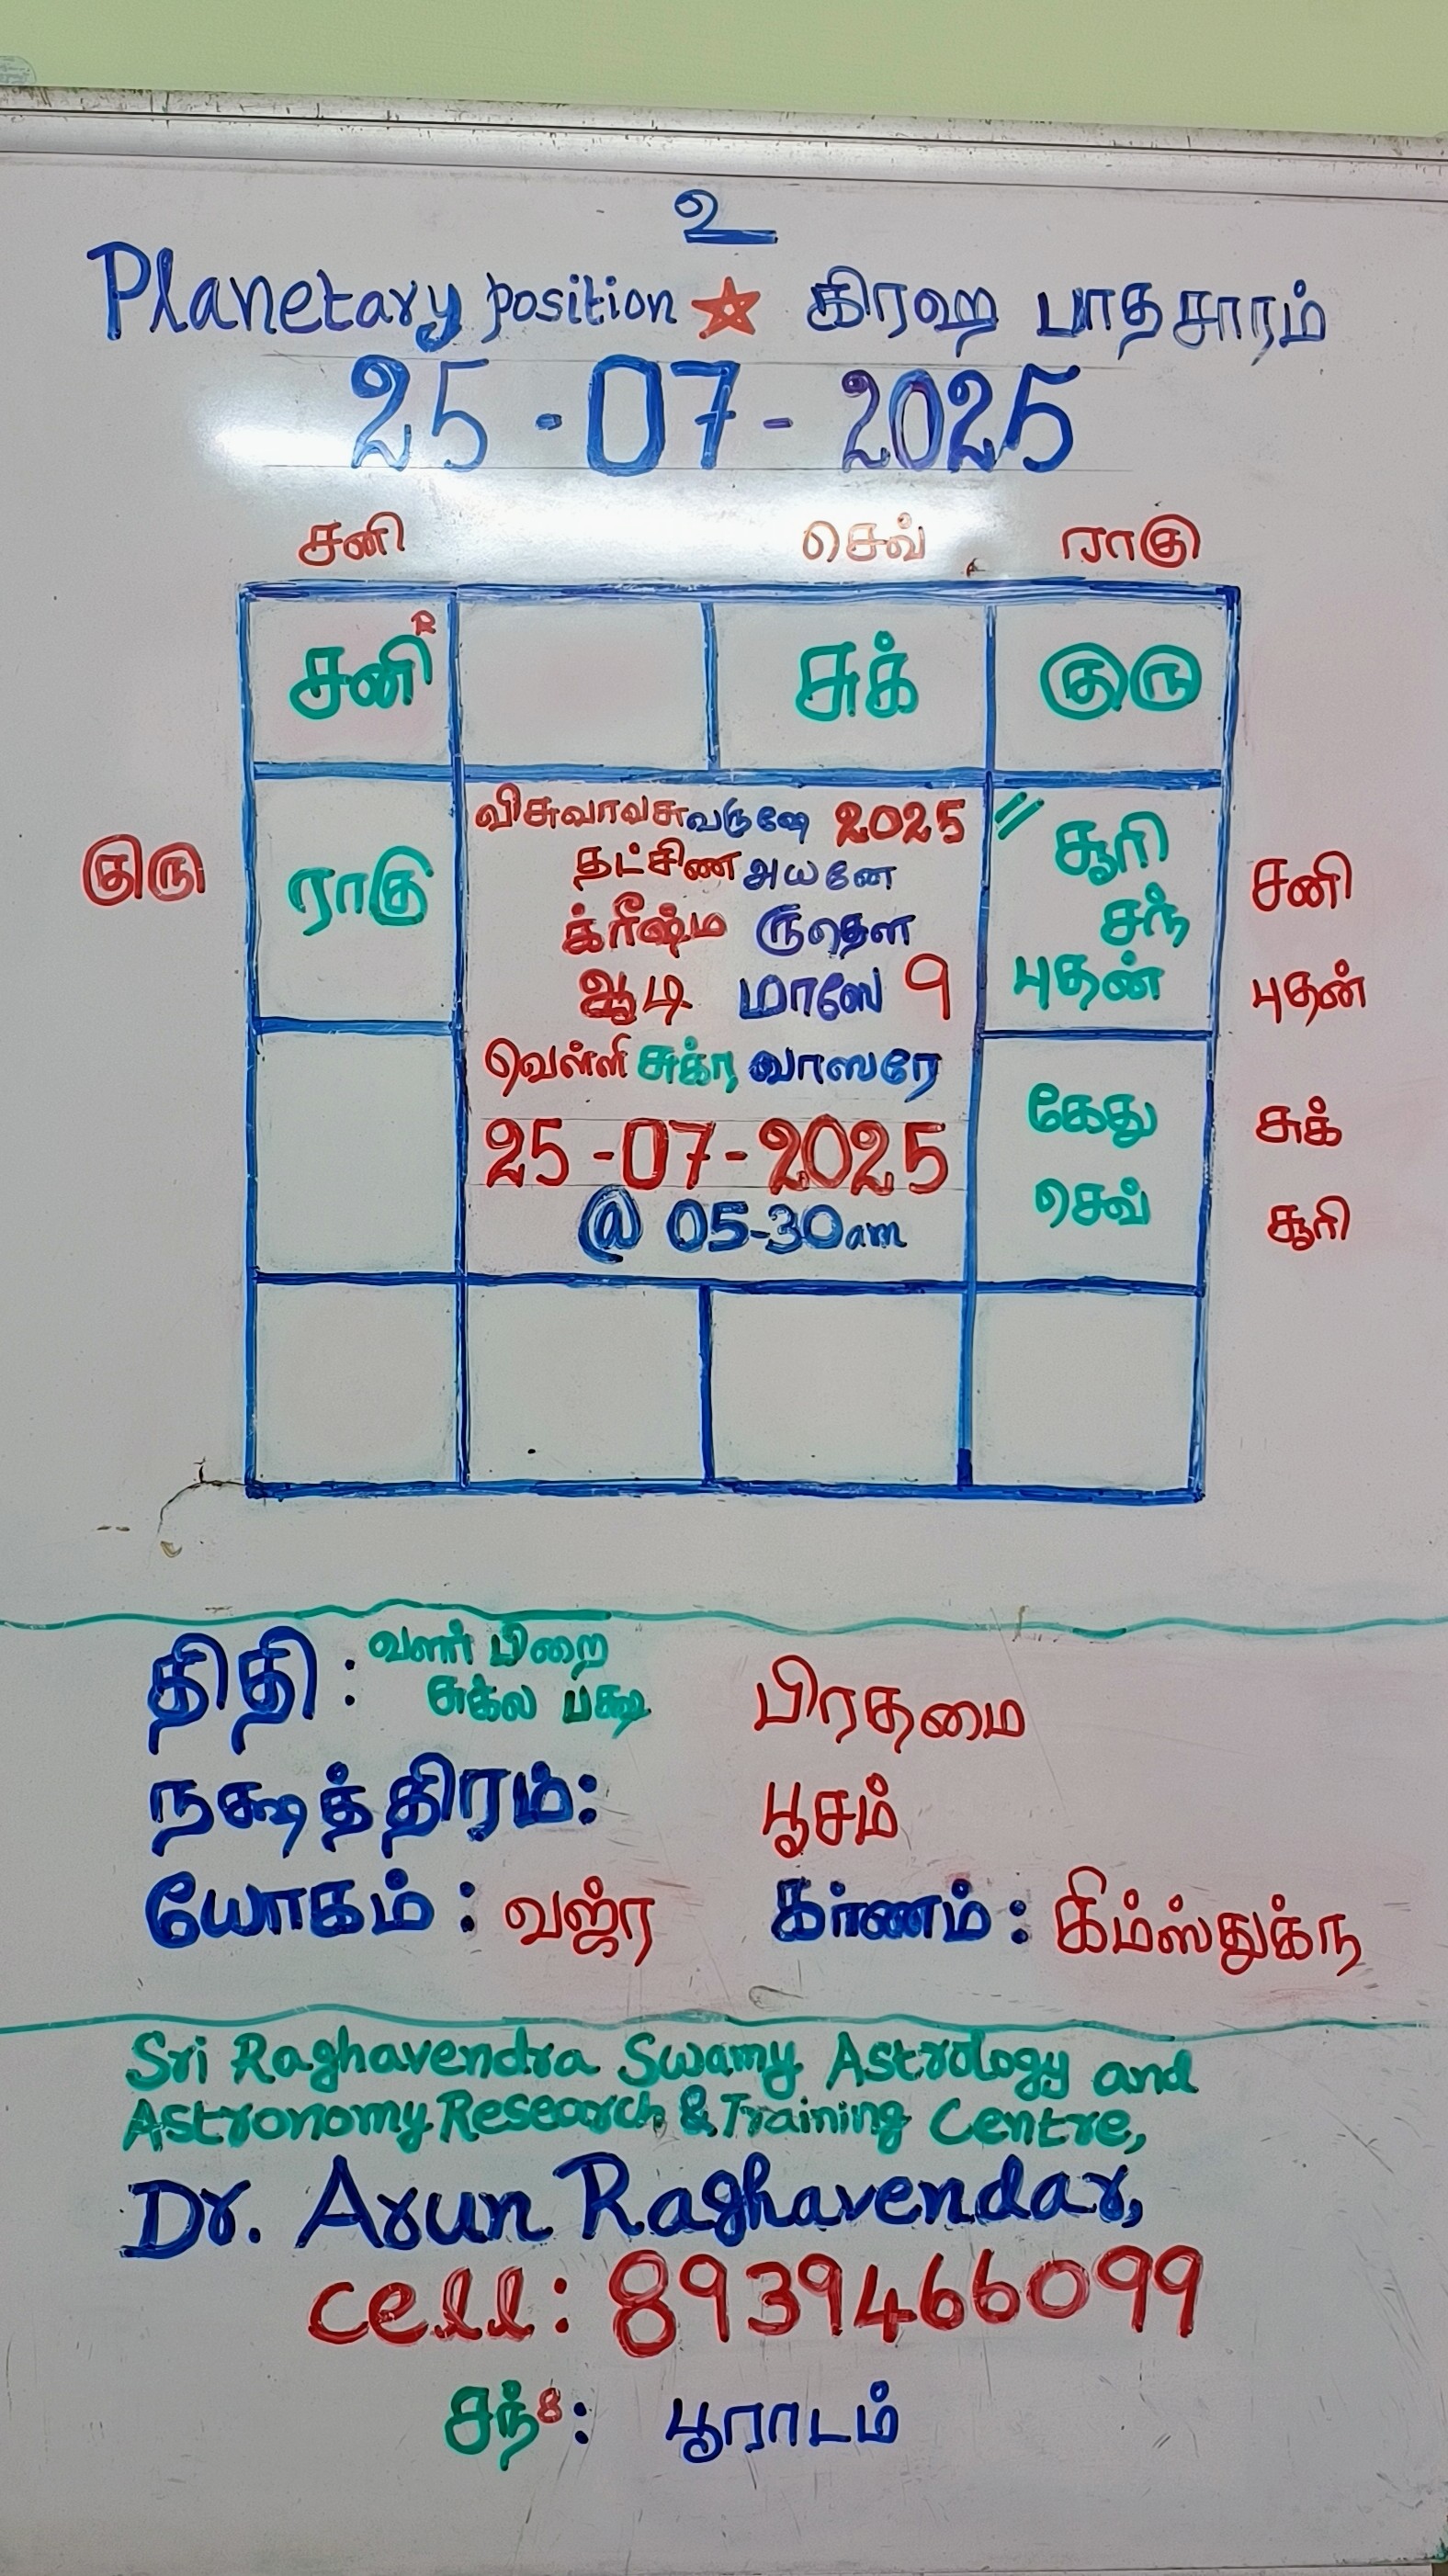 உ
Planetary position ☆ கிரஹ பாதசாரம்
25-07-2025
சனி செவ் ராகு
சனி R சுக் குரு
விசுவாவசுவருஷே 2025
தட்சிணஅயனே
க்ரீஷ்ம ருதௌ
ஆடி மாஸே 9
வெள்ளி சுக்ர வாஸரே
25-07-2025
@ 05-30am
குரு ராகு
சூரி
சந்
புதன்
சனி
புதன்
கேது
செவ்
சுக்
சூரி
திதி: வளர் பிறை
சுக்ல பக்ஷ பிரதமை
நக்ஷத்திரம்: பூசம்
யோகம்: வஜ்ர கர்ணம்: கிம்ஸ்துக்ந
Sri Raghavendra Swamy Astrology and
Astronomy Research & Training Centre,
Dr. Arun Raghavendar,
cell: 8939466099
சந் 8: பூராடம்